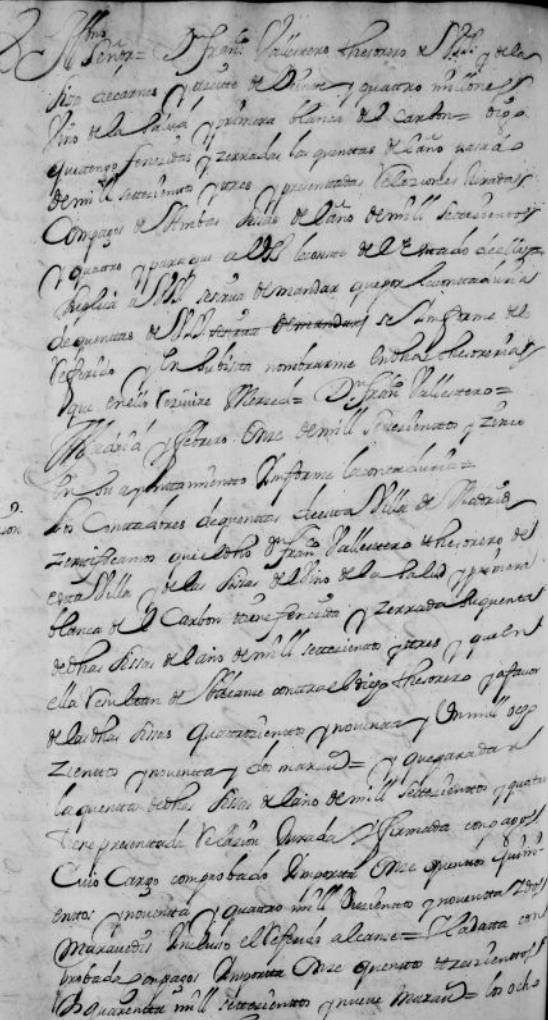 Señor = Dn Franco Vallestero thesorero de V.S.I. y de la
sisa de carnes y azeite de Veinte y quatro millones
Vino de la Salud y primera blanca del Carbon = digo
que tengo fenezidas y zerradas las quentas del año pasado
de mill settezientos y tres y presentadas Relaziones Juradas
Con pagos de Ambas sisas del año de mill settezientos
y quatro y para que a V.S.I. le conste del Estado de ellas
suplica a V.S.I. se sirva de mandar que por la contaduria
de quentas de V.S.I. se Informe de lo
Refferido y En su bista nombrarme En dhas thesorerias
que en ello Rezivire Merced = Dn Franco Vallestero =
Madrid y febrero Onze de mill settezientos y zinco
En su ayuntamiento Informe la contaduria =
Los Contadores de quentas de esta Villa de Madrid
zertificamos que el dho Dn Franco Vallestero thesorero de
esta Villa y de las sisas del Vino de la Salud y primera
blanca del Carbon tiene fenezida y zerrada la quenta
de dhas sisas del año de mill settezientos y tres y que En
ella Resultan de Alcanze contra el dicho thesorero y a favor
de las dhas sisas quatrozientos y noventa y Un mill
zientos y noventa y dos marauds = y que para dar
la quenta de dhas sisas del año de mill settezientos y quatro
tiene presentada Relazion Jurada y firmada con pagos
Cuio Cargo comprobado Importa Onze quentos quini-
entos y noventa y quatro mill y noventa y dos
Maravedis Incluso el Refferido alcanze = Y la datta com-
probada con pagos Importa Onze quentos trescientos
y quarenta mill settezientos y nueve maraud = los ocho